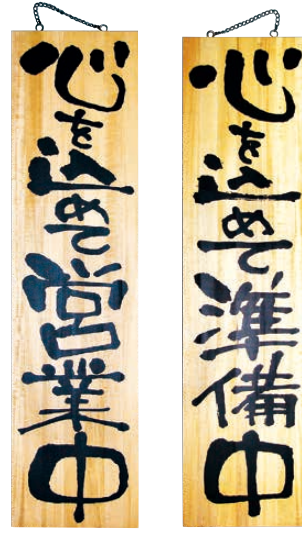 心を込めて営業中
心を込めて準備中